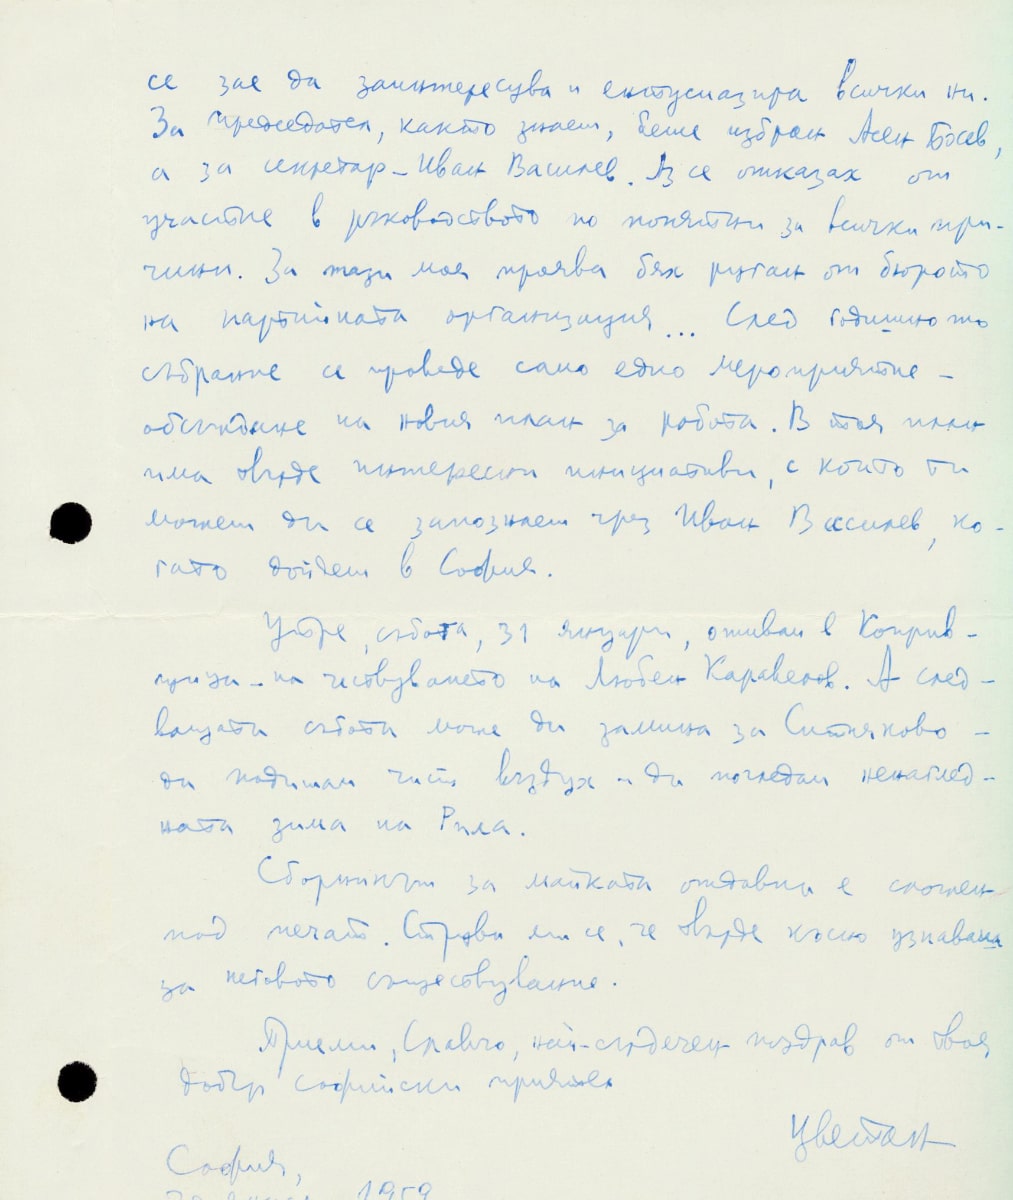 се зае да заинтересува и ентусиазира всички ни.
За председател, както знаеш, беше избран Асен Босев,
а за секретар – Иван Василев. Аз се отказах от
участие в ръководството по понятни за всички при-
чини. За тази моя проява бях руган от бюрото
на партийната организация... След годишното
събрание се проведе само едно мероприятие –
обсъждане на новия план за работа. В тоя план
има твърде интересни инициативи, с които ти
можеш да се запознаеш чрез Иван Василев, ко-
гато дойдеш в София.
Утре, събота, 31 януари, отивам в Коприв-
щица – на чествуването на Любен Каравелов. А след-
ващата събота може да замина за Ситняково –
да подишам чист въздух и да погледам ненаглед-
ната зима на Рила.
Сборникът за майката отдавна е сложен
под печат. Струва ми се, че твърде късно узнаваш
за неговото съществуване.
Приеми, Славчо, най-сърдечен поздрав от твоя
добър софийски приятел
Цветан
София,
1959